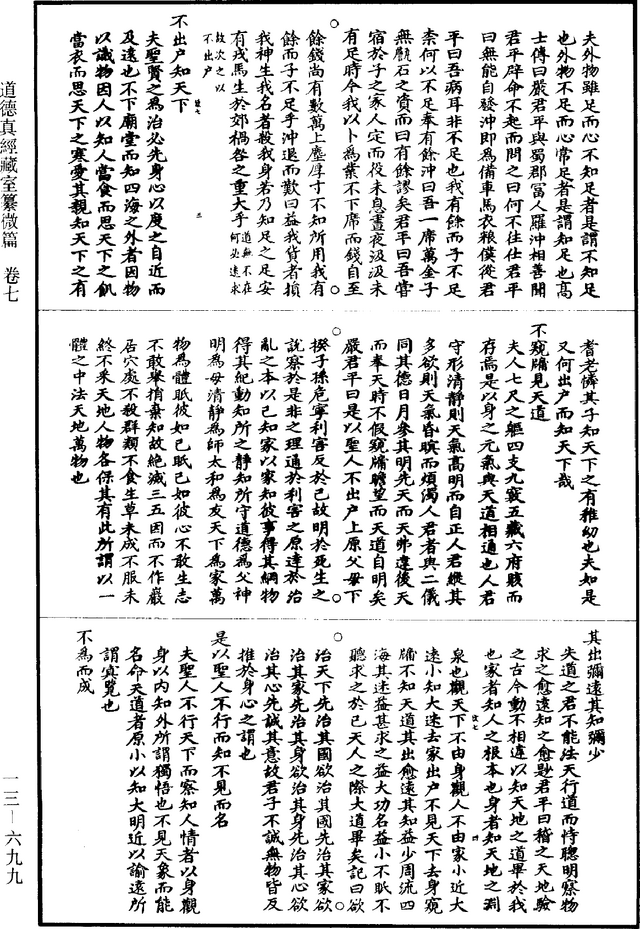 夫外物雖足而心不知足者是謂不知足
也外物不足而心常足者是謂知足也高
士傳曰嚴君平與蜀郡富人羅沖相善開
君平辟命不起而問之曰何不仕仕君平
曰無能自發沖即為備車馬衣粮僕從君
平曰吾病耳非不足也我有餘而子不足
柰何以不足奉有餘沖曰吾一席萬金子
無甔石之資而曰有餘謬矣君平曰吾嘗
宿於子之家人定而役未息晝夜汲汲未
有足時今我以卜為業不下席而錢自至
餘錢尚有數萬上塵厚寸不知所用我有
餘而子不足乎沖退而歎曰益我貨者損
我神生我名者殺我身若乃知足之足安
有戎馬生於郊禍咎之重大乎道無不在何必遠求
故次之以不出戶
不出戶知天下
夫聖賢之為治必先身心以度之自近而
及遠也不下廟堂而知四海之外者因物
以識物因人以知人當食而思天下之飢
當衣而思天下之寒愛其親知天下之有
耆老憐其子知天下之有稚幼也夫如是
又何出戶而知天下哉
不窺牖見天道
夫人七尺之軀四支九竅五藏六府賅而
存焉是以身之元氣與天道相通也人君
守形清靜則天氣高明而自正人君縱其
多欲則天氣昏瞑而煩濁人君者與二儀
同其德日月參其明先天而天弗違後天
而奉天時不假窺牖瞻望而天道自明矣
嚴君平曰是以聖人不出戶上原父母下
揆子孫危寧利害反於己故明於死生之
說察於是非之理通於利害之原達於治
亂之本以己知家以家知彼事得其綱物
得其紀動知所之靜知所守道德為父神
明為母清靜為師太和為友天下為家萬
物為體眡彼如己眡己如彼心不敢生志
不敢舉捐棄知故絕滅三五因而不作巖
居穴處不殺群類不食生草未成不服未
終不釆天地人物各保其有此所謂以一
體之中法天地萬物也
其出彌遠其知彌少
失道之君不能法天行道而恃聰明察物
求之愈遠知之愈尟君平曰稽之天地驗
之古今動不相違以知天地之道畢於我
也家者知人之根本也身者知天地之淵
泉也觀天下不由身觀人不由家小近大
遠小知大迷去家出戶不見天下去身窺
牖不知天道其出愈遠其知益少周流四
海其迷益甚求之益大功名益小不眡不
聽求之於己天人之際大道畢矣記曰欲
治天下先治其國欲治其國先治其家欲
治其家先治其身欲治其身先治其心欲
治其心先誠其意故君子不誠無物皆反
推於身心之謂也
是以聖人不行而知不見而名
夫聖人不行天下而察知人情者以身觀
身以內知外所謂獨悟也不見天象而能
名命天道者原小以知大明近以諭遠所
謂冥覽也
不為而成
道德真經藏室纂微篇 卷七
一三—六九九